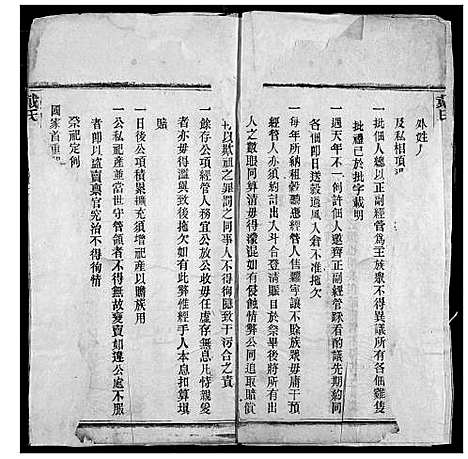 戴氏
外姓人
及私相項
一批佃人總以正副經管為主族眾不得異議所有各佃雞隻
批禮已於批字載明
一遇天年不一例許佃人邀齊正副經管踩看酌議先期約同
各佃即日送穀過風入倉不准拖欠
一每年所納租穀聽憑經管人售糶寧讓不賒族眾毋庸干預
經管人亦須約計出入斗合登清賬目於祭畢後將所有出
入之數眼同算清毋得濛混如有侵蝕情弊公同追取賠償
以欺祖之罪罰之同事人不得徇隱致干污合之責
一餘存公項經管人務宜公放公收毋任虛存無息凡悖親愛
者亦毋得濫與致後拖欠如有此弊惟經手人本息扣算填
賠
一日後公項積累擴充須增祀產以贍族用
一公私祀產並當世守管領者不得無故變賣如違公處不服
者即以盜賣稟官究治不得徇情
祭祀定例
國家首重
戴氏